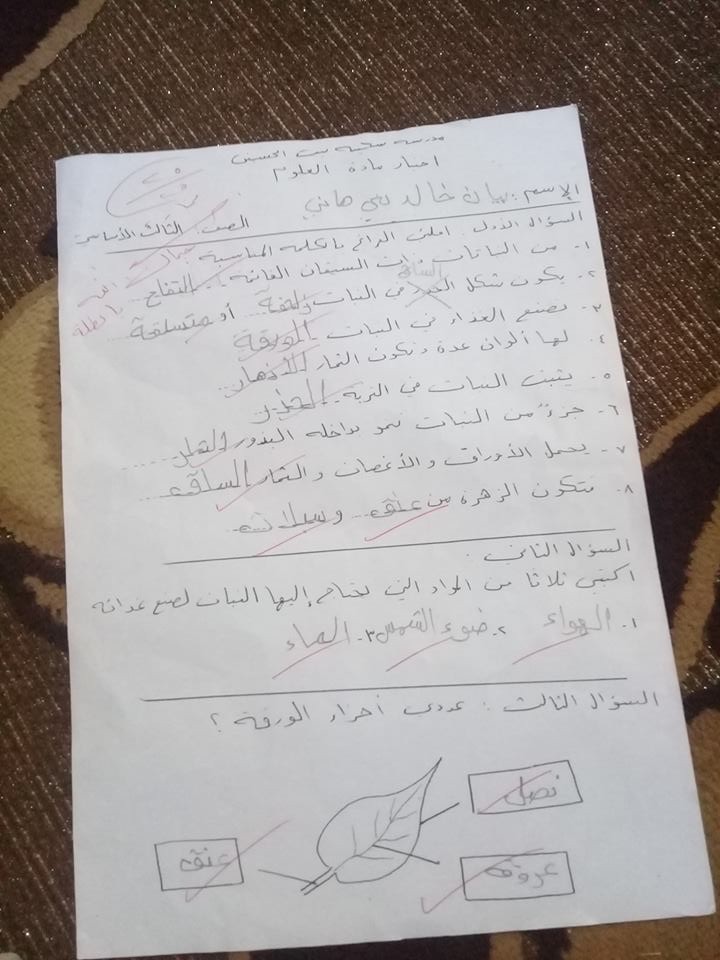 مدرسة سمية بنت الحسين
اختبار مادة العلوم
٢٠
٢٠
الإسم: بيان خالد بني هاني
الصف: الثالث الأساسي
السؤال الأول: املئي الفراغ بالكلمة المناسبة
١- من النباتات ذات السيقان القائمة: التفاح
٢- يكون شكل الساق في النبات زاحفة أو متسلقة
٣- تصنع الغذاء في النبات الورقة
٤- لها ألوان عدة وتكون الثمار الأزهار
٥- يثبت النبات في التربة الجذر
٦- جزء من النبات نمو بداخله البذور الثمار
٧- يحمل الأوراق والأغصان والثمار الساق
٨- تتكون الزهرة من عنق وسبلات
السؤال الثاني:
اكتبي ثلاثا من المواد التي يحتاج إليها النبات لصنع غذائه
١- الهواء ٢- ضوء الشمس ٣- الماء
السؤال الثالث: عددي أجزاء الورقة؟
نصل
عنق
عروق